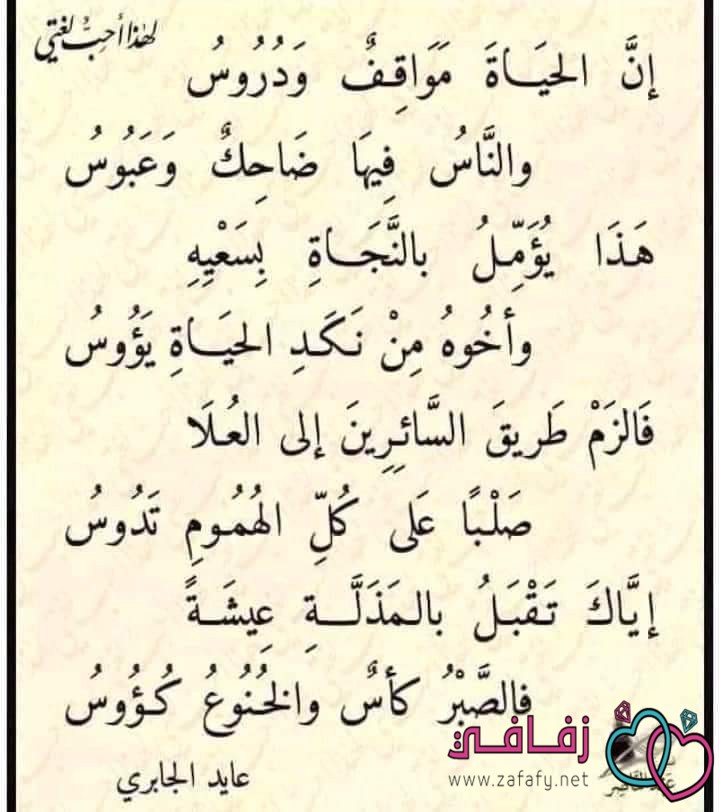 لهٰذا أحبُّ لغتي
إنَّ الحيَاةَ مَوَاقِفٌ وَدُرُوسُ
والنَّاسُ فِيهَا ضَاحِكٌ وَعَبُوسُ
هَذَا يُؤَمِّلُ بالنَّجَاةِ بِسَعْيِهِ
وأخُوهُ مِنْ نَكَدِ الحيَاةِ يَؤُوسُ
فَالزَمْ طَرِيقَ السَّائِرِينَ إلى العُلَا
صَلْبًا عَلى كُلِّ الهُمُومِ تَدُوسُ
إيَّاكَ تَقْبَلُ بالمَذَلَّةِ عِيشَةً
فالصَّبْرُ كأسٌ والخُنُوعُ كُؤُوسُ
عايد الجابري
زفافي
www.zafafy.net